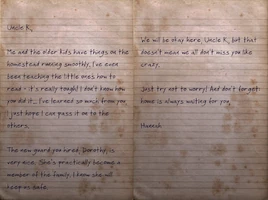 Uncle K,
Me and the older kids have things on the
homestead running smoothly, I've even
been teaching the little ones how to
read - it's really tough! I don't know how
you did it... I've learned so much from you,
I just hope I can pass it on to the
others.
The new guard you hired, Dorothy, is
very nice. She's practically become a
member of the family. I know she will
keep us safe.
We will be okay here, Uncle K, but that
doesn't mean we all don't miss you like
crazy.
Just try not to worry! And don't forget:
home is always waiting for you.
Hannah